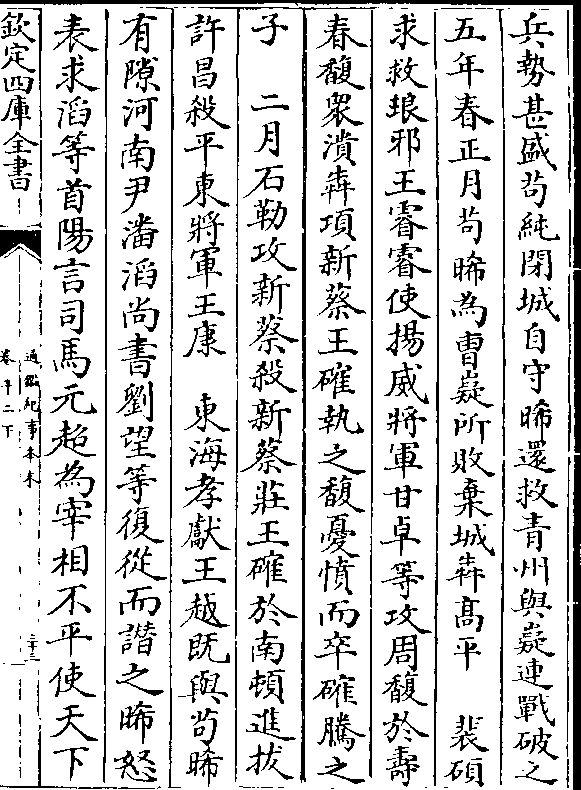 兵勢甚盛茍純閉城自守晞還救青州與嶷連戰破之
五年春正月茍晞為曹嶷所敗棄城犇髙平　裴碩
求救琅邪王睿睿使揚威將軍甘卓等攻周馥於壽
春馥衆潰犇項新蔡王確執之馥憂憤而卒確騰之
子　二月石勒攻新蔡殺新蔡莊王確於南頓進拔
許昌殺平東將軍王康　東海孝獻王越既與茍晞
有隙河南尹潘滔尚書劉望等復從而譖之晞怒
表求滔等首陽言司馬元超為宰相不平使天下
欽定四庫全書
通鑑紀事本末
卷十二下
三十三